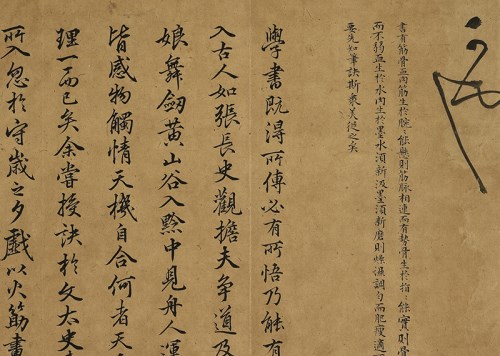 書有筋骨血肉筋生於腕〻能懸則筋脉相連而有勢骨生於指〻能實則骨
而不弱血生於水肉生於墨水須新汲墨須新磨則燥濕調勻而肥瘦適
要先知筆訣斯衆美從之矣
學書既得所傳必有所悟乃能有
入古人如張長史觀擔夫爭道及
娘舞劒黃山谷入黔中見舟人運
皆感物觸情天機自合何者天
理一而已矣余嘗授訣於文太史
所入忽於守歲之夕戲以火筋畫